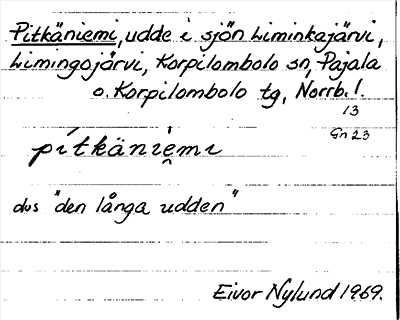 Pitkäniemi, udde i sjön Liminkajärvi,
Limingojärvi, Korpilombolo sn, Pajala
o. Korpilombolo tg, Norrb. l.
13
Gn 23
pìtkänìe̯mi
dvs "den långa udden"
Eivor Nylund 1969.